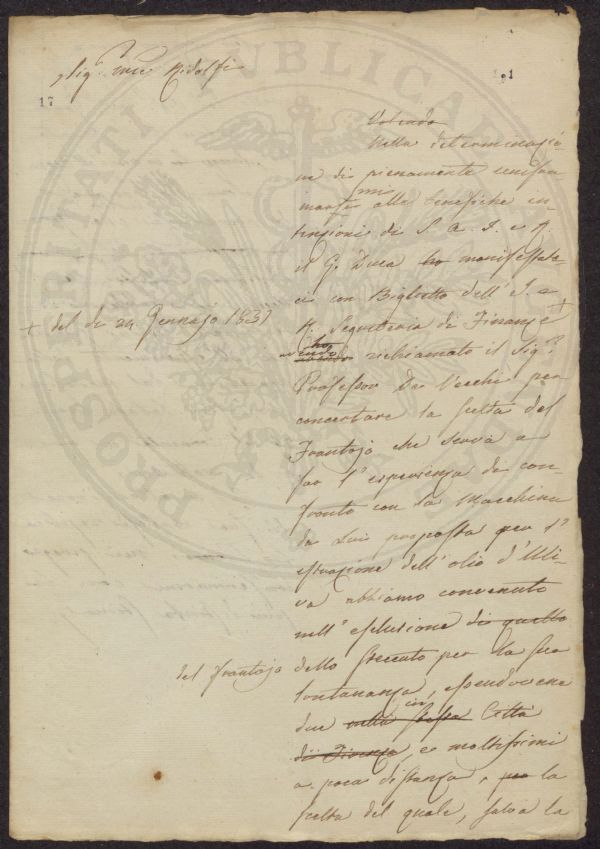 Sig.r Mse Ridolfi
17
191
Volendo
Nella determinazio
ne di pienamente unifor
marmi alle benefiche in
tenzioni di S. A. I. e R.
il G. Duca ho manifestate
ci con Biglietto dell' I. e
+ del dì 24 Gennajo 1837
R. Segreteria di Finanze +
avendo ho richiamato il Sig.r
Professor De Vecchi per
concertare la scelta del
Frantojo che serva a
far l'esperienza di con
fronto con la Macchina
da Lui proposta per l'
estrazione dell'olio d'Uli
va abbiamo convenuto
nell'esclusione di quello
del Frantojo
dello Steccuto per la sua
lontananza, essendovene
due nella stessa in Città
di Firenze e moltissimi
a poca distanza, per la
scelta del quale, salva la
PROSPERITATI PUBLICAE